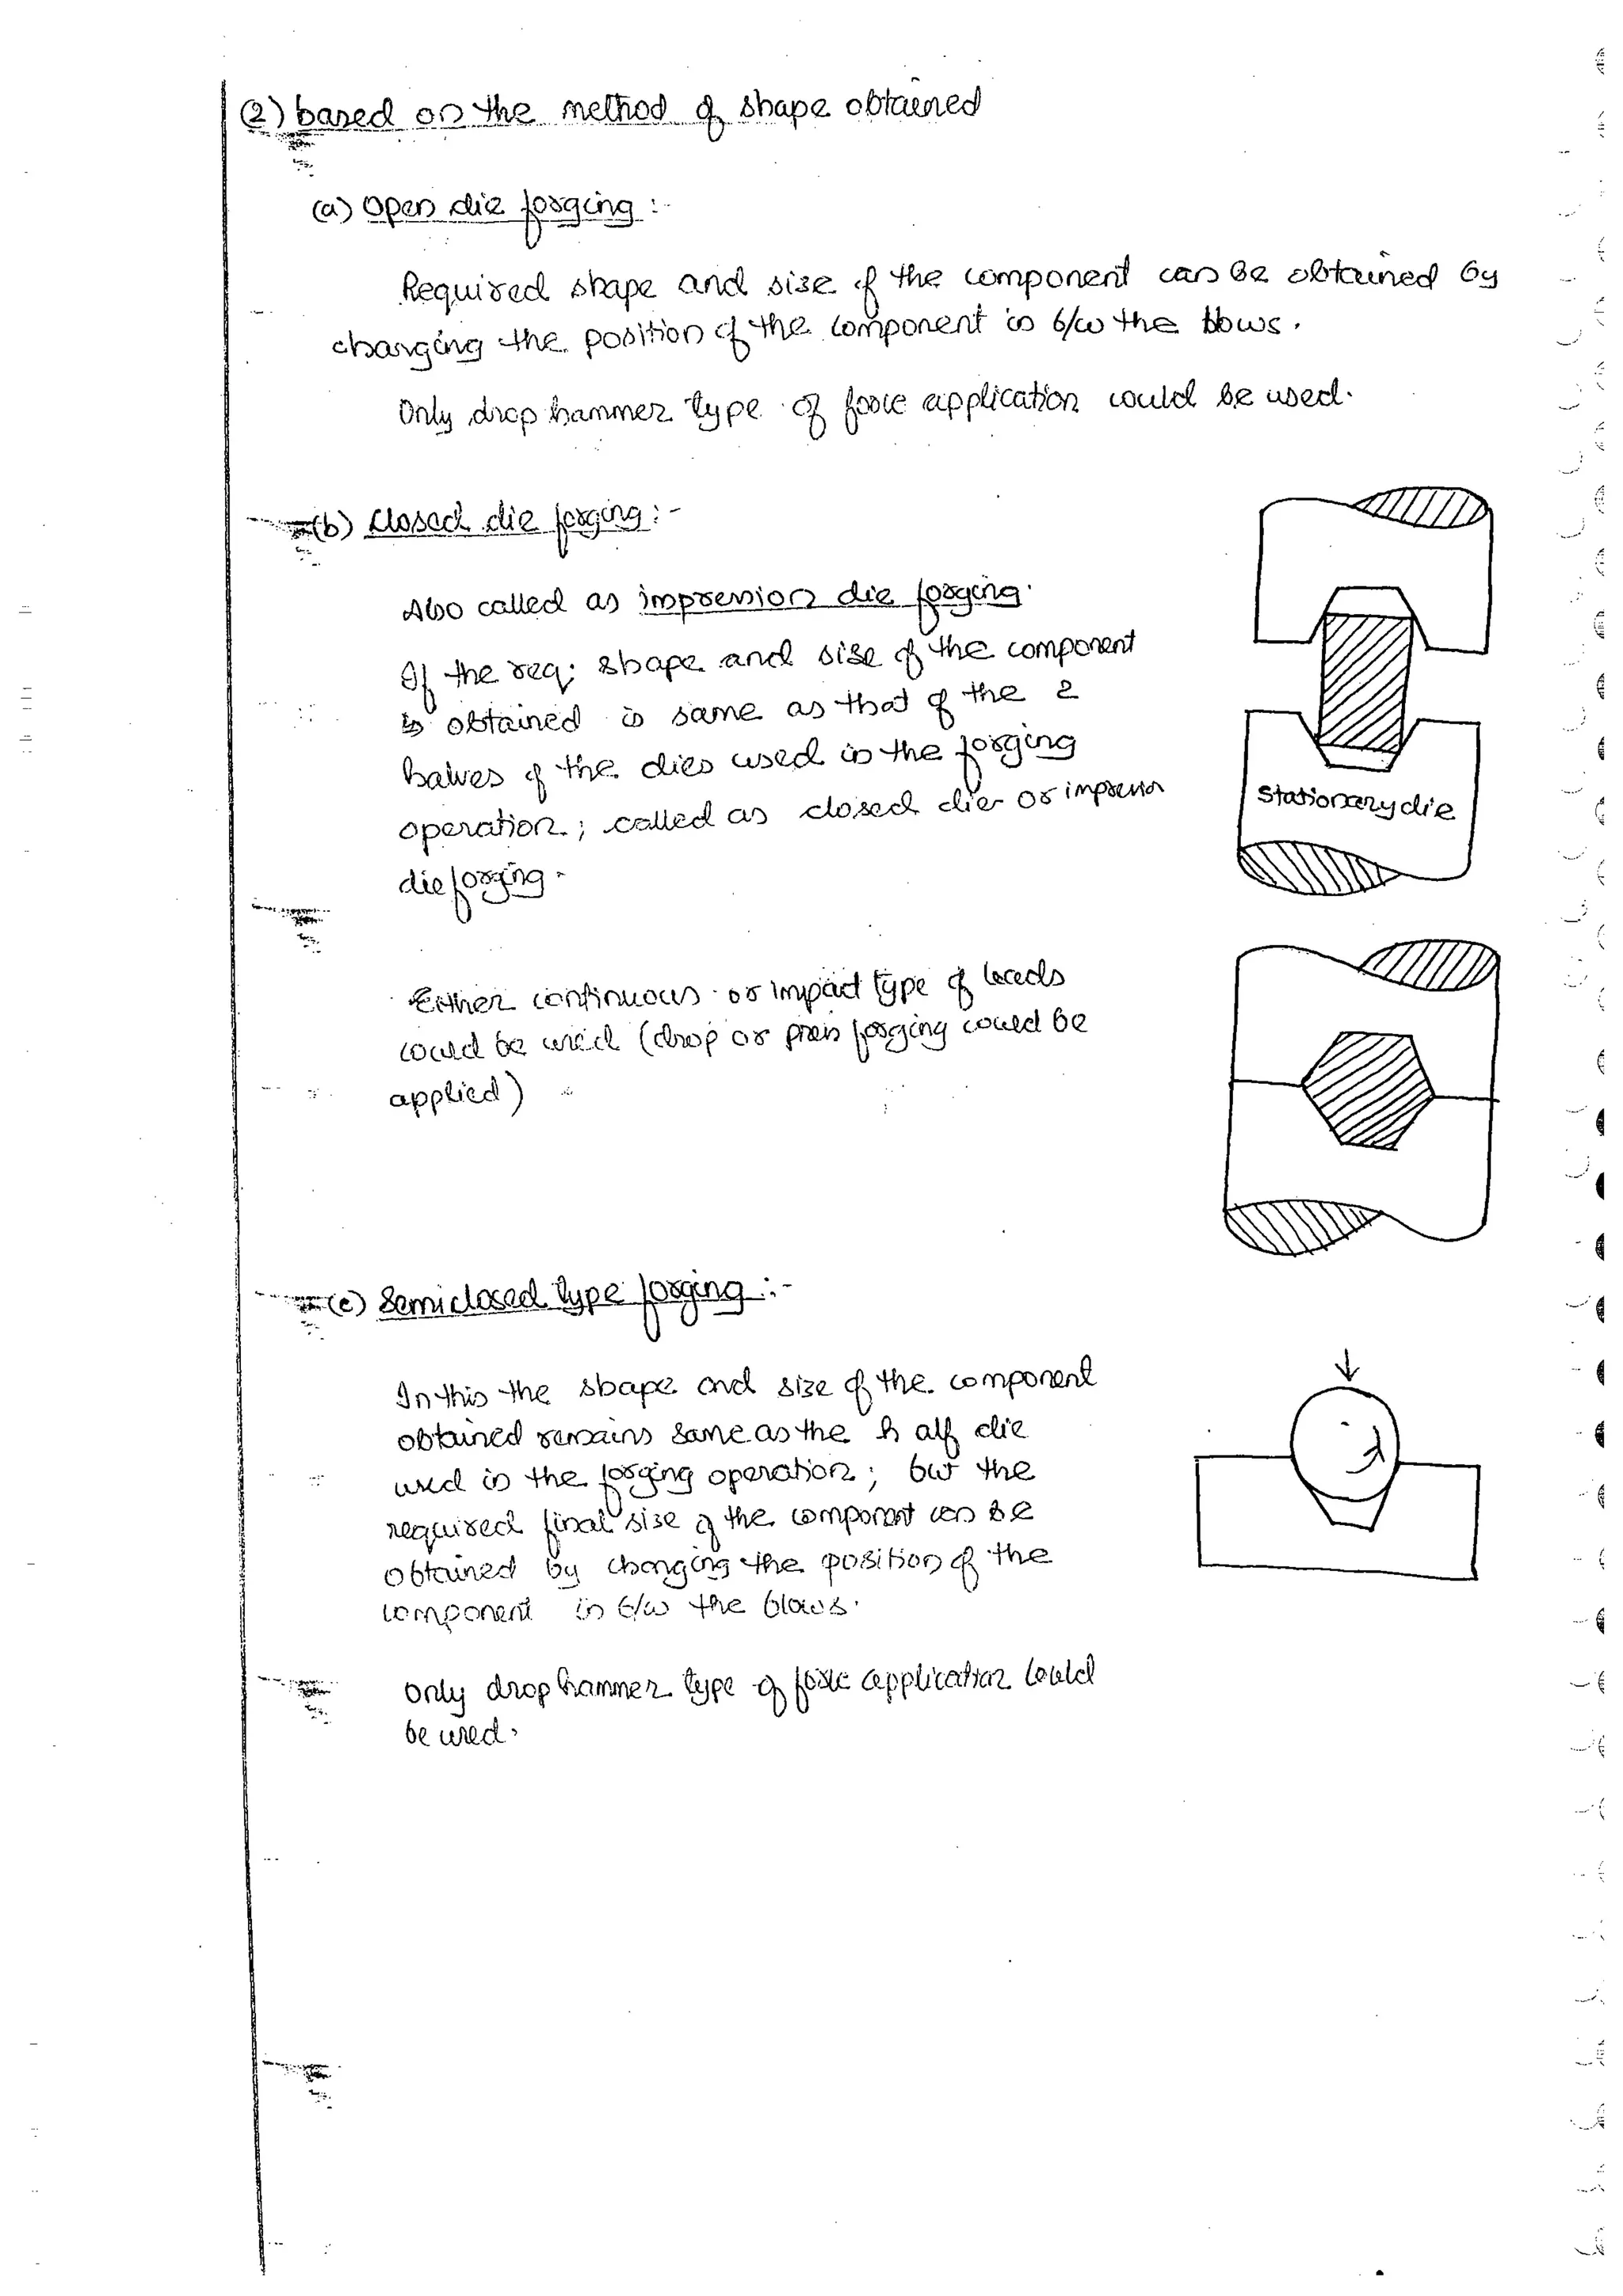 (2) based on the method of shape obtained
(a) Open die forging :-
Required shape and size of the component can be obtained by
changing the position of the component in b/w the blows.
Only drop hammer type of force application could be used.
(b) Closed die forging :-
Also called as impression die forging.
If the req; shape and size of the component
is obtained is same as that of the 2
halves of the dies used in the forging
operation; called as closed die or impression
die forging.
Stationary die
Either continuous or impact type of loads
could be used (drop or press forging could be
applied)
(c) Semiclosed type forging :-
In this the shape and size of the component
obtained remains same as the half die
used in the forging operation; but the
required final size of the component can be
obtained by changing the position of the
component in b/w the blows.
Only drop hammer type of force application could
be used.